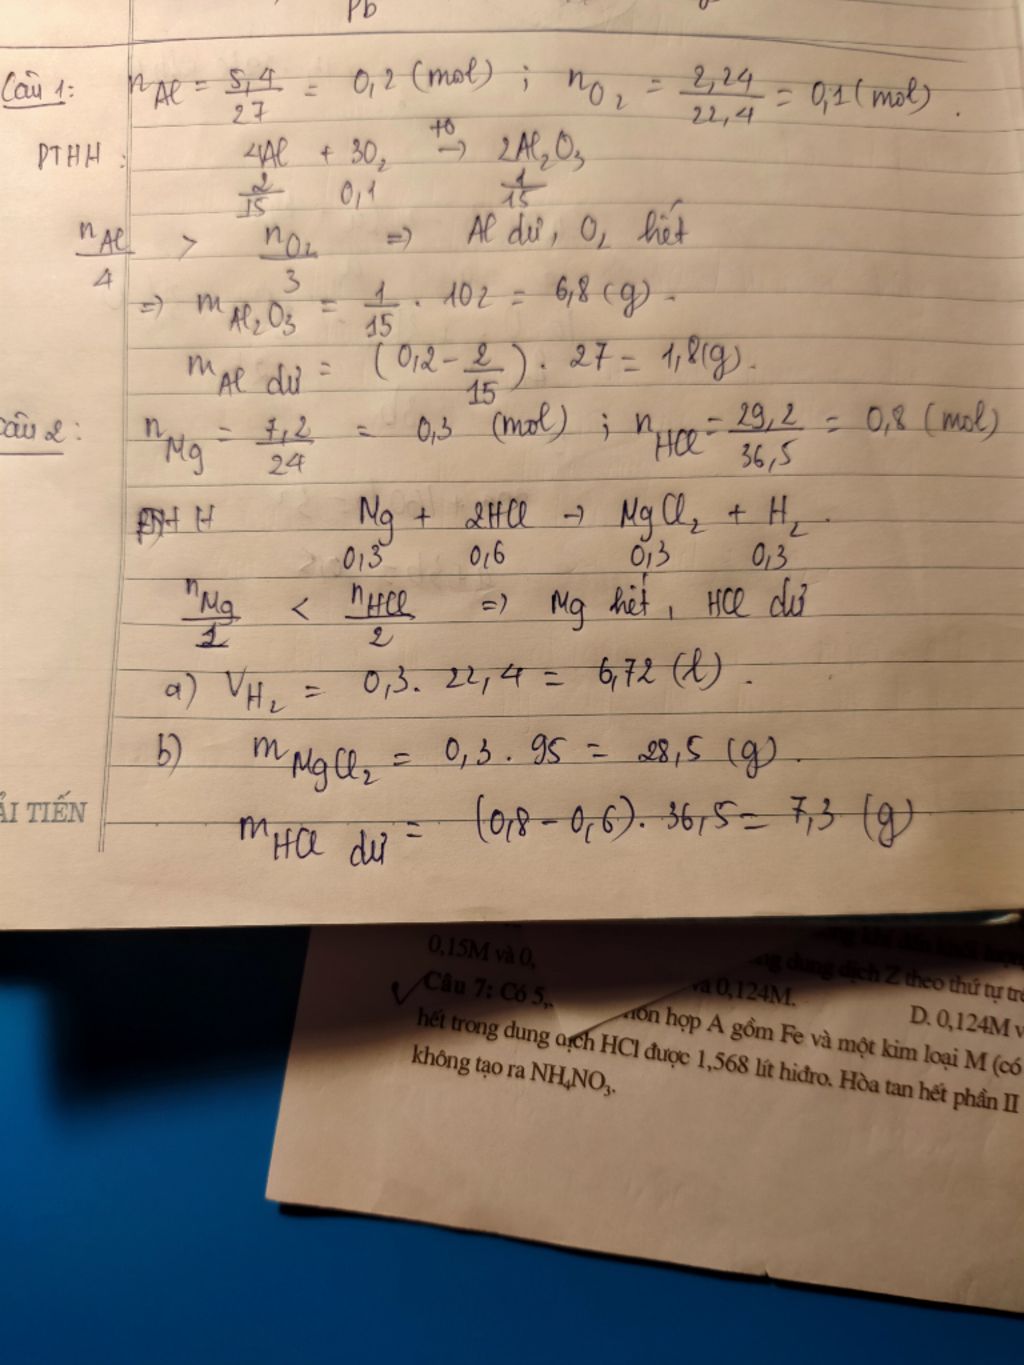 Pb
Câu 1: n Al = 5,4/27 = 0,2 (mol) ; n O2 = 2,24/22,4 = 0,1 (mol).
PTHH : 4Al + 3O2 →(t0) 2Al2O3
2/15 0,1 1/15
n Al/4 > n O2/3 => Al dư, O2 hết
=> m Al2O3 = 1/15 . 102 = 6,8 (g).
m Al dư = (0,2 - 2/15) . 27 = 1,8(g).
Câu 2 : n Mg = 7,2/24 = 0,3 (mol) ; n HCl = 29,2/36,5 = 0,8 (mol)
PTHH Mg + 2HCl → MgCl2 + H2.
0,3 0,6 0,3 0,3
n Mg/1 < n HCl/2 => Mg hết, HCl dư
a) V H2 = 0,3. 22,4 = 6,72 (l).
b) m MgCl2 = 0,3 . 95 = 28,5 (g).
ẢI TIẾN
m HCl dư = (0,8 - 0,6). 36,5 = 7,3 (g)
0,15M và 0,
dung dịch Z theo thứ tự
và 0,124M.
D. 0,124M v
Câu 7: Có 5, hỗn hợp A gồm Fe và một kim loại M (có
hết trong dung dịch HCl được 1,568 lít hiđro. Hòa tan hết phần II
không tạo ra NH4NO3.